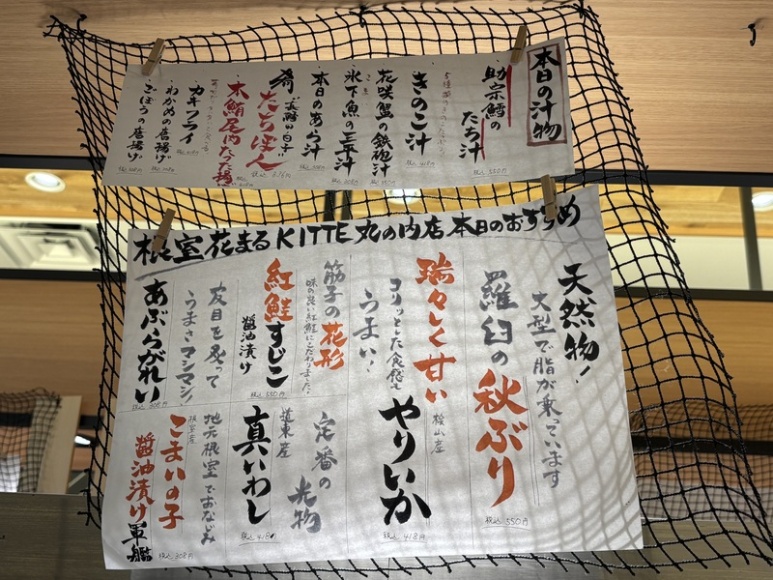 本日の汁物
助宗鱈の
たち汁
税込 550円
きのこ汁
花咲蟹の鉄砲汁
氷下魚の三平汁
本日のあら汁
肴
たちぽん
カキフライ
わかめの唐揚げ
ごぼうの唐揚げ
根室花まるKITTE丸の内店 本日のおすすめ
天然物!
大型で脂が乗っています
羅臼の秋ぶり
税込 550円
瑞々しく甘い
コリッとした食感で
うまい!
桧山産
やりいか
税込 418円
筋子の花形
味の良い紅鮭にこだわりました!
紅鮭すじこ
醤油漬け
定番の
光物
道東産
真いわし
税込 418円
皮目を炙って
うまさマシマシ!
あぶらがれい
地元根室でおなじみ
根室産
こまいの子
醤油漬け軍艦
税込 308円